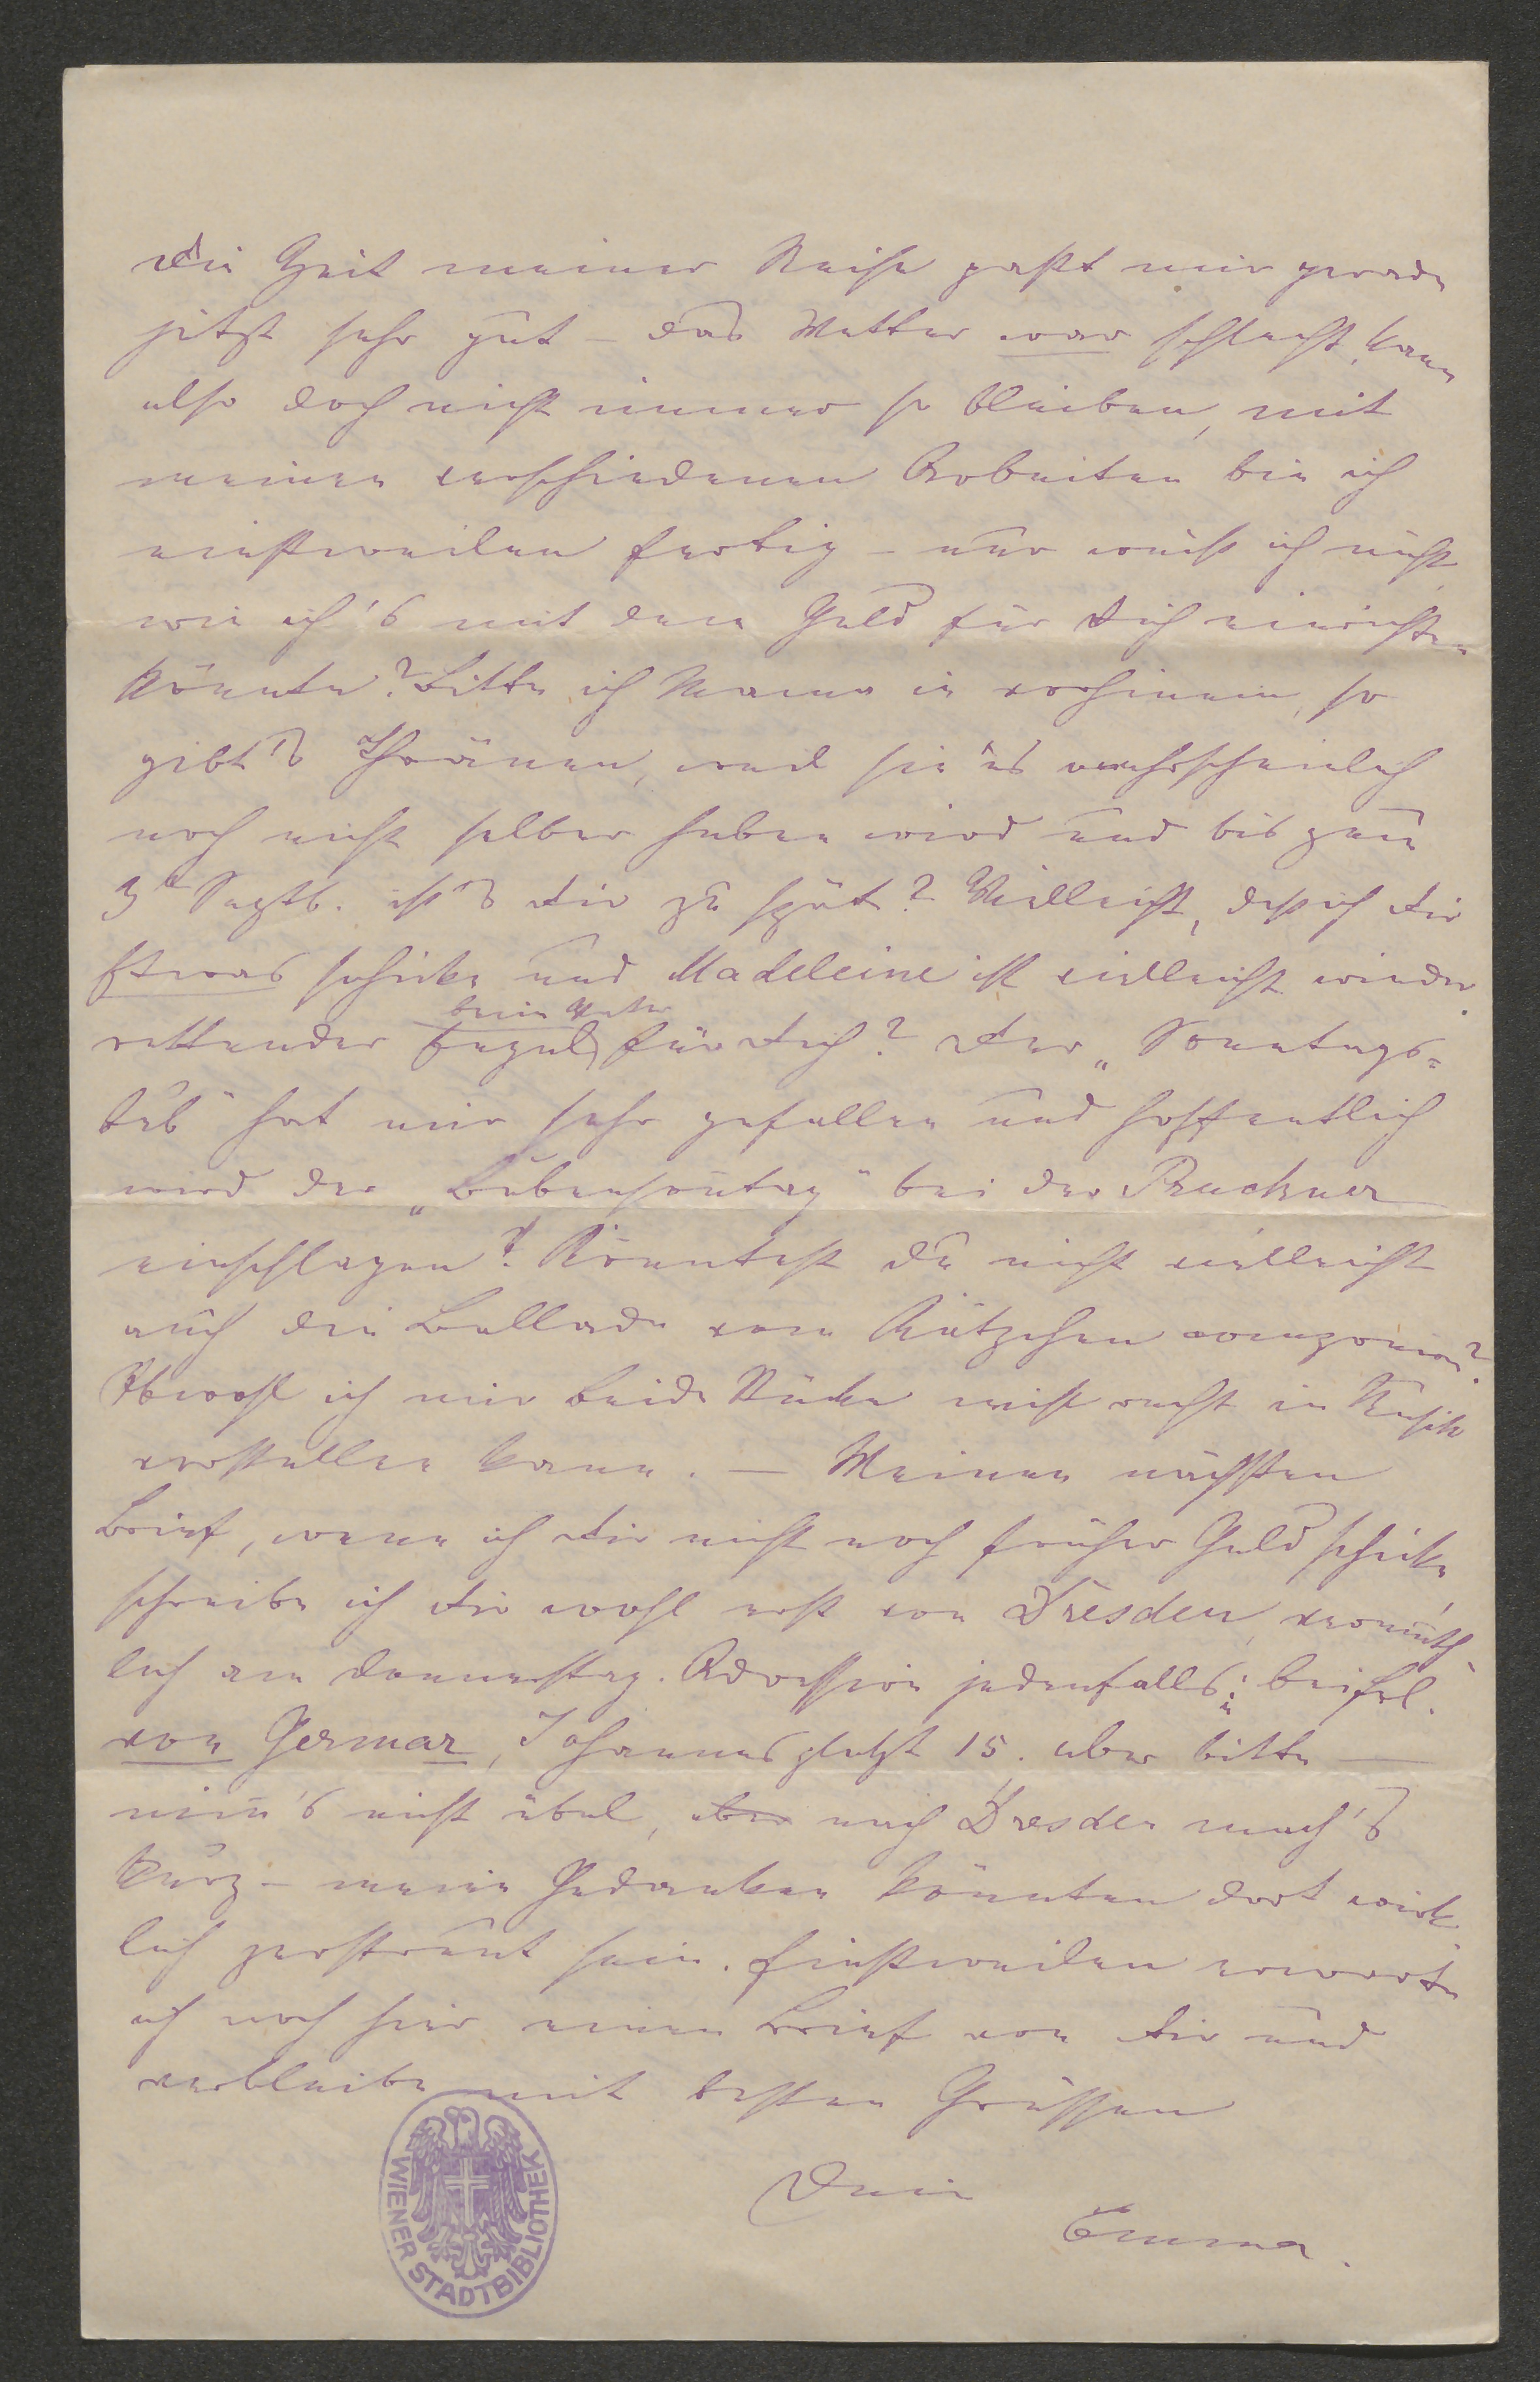 Die Zeit meiner Reise paßt mir gerade
jetzt sehr gut – das Wetter war schlecht, kann
also doch nicht immer so bleiben, mit
meinen verschiedenen Arbeiten bin ich
einstweilen fertig – nur weiß ich nicht
wie ich's mit dem Geld für Dich einrichten
könnte? Bitte ich Mama im vorhinein, so
gibt's Thränen, weil sie es wahrscheinlich
noch nicht selber haben wird und bis zum
3t Septb. ist's Dir zu spät? Vielleicht, daß ich Dir
Etwas schicke und Madeleine ist vielleicht wieder
beim
rettender Engel für Dich? Der „Sonntags-
bub" hat mir sehr gefallen und hoffentlich
wird der „Bubensontag" bei der Pruckner
einschlagen? Könntest Du nicht vielleicht
auch die Ballade vom Kätzchen componiren?
Obwohl ich mir beide Stücke nicht recht in Musik
vorstellen kann. – Meinen nächsten
Brief, wenn ich Dir nicht noch früher Geld schicke
schreibe ich Dir wohl erst von Dresden, vermuth-
lich am Donnerstag. Adressire jedenfalls: bei Frl.
von Germar, Johannesplatz 15. aber bitte –
nim's nicht übel, aber nach Dresden mach's
kurz – meine Gedanken könnten dort wirk-
lich zerstreut sein. Einstweilen erwarte
ich noch hier einen Brief von Dir und
verbleibe mit besten Grüssen
Deine
Emma.
WIENER STADTBIBLIOTHEK